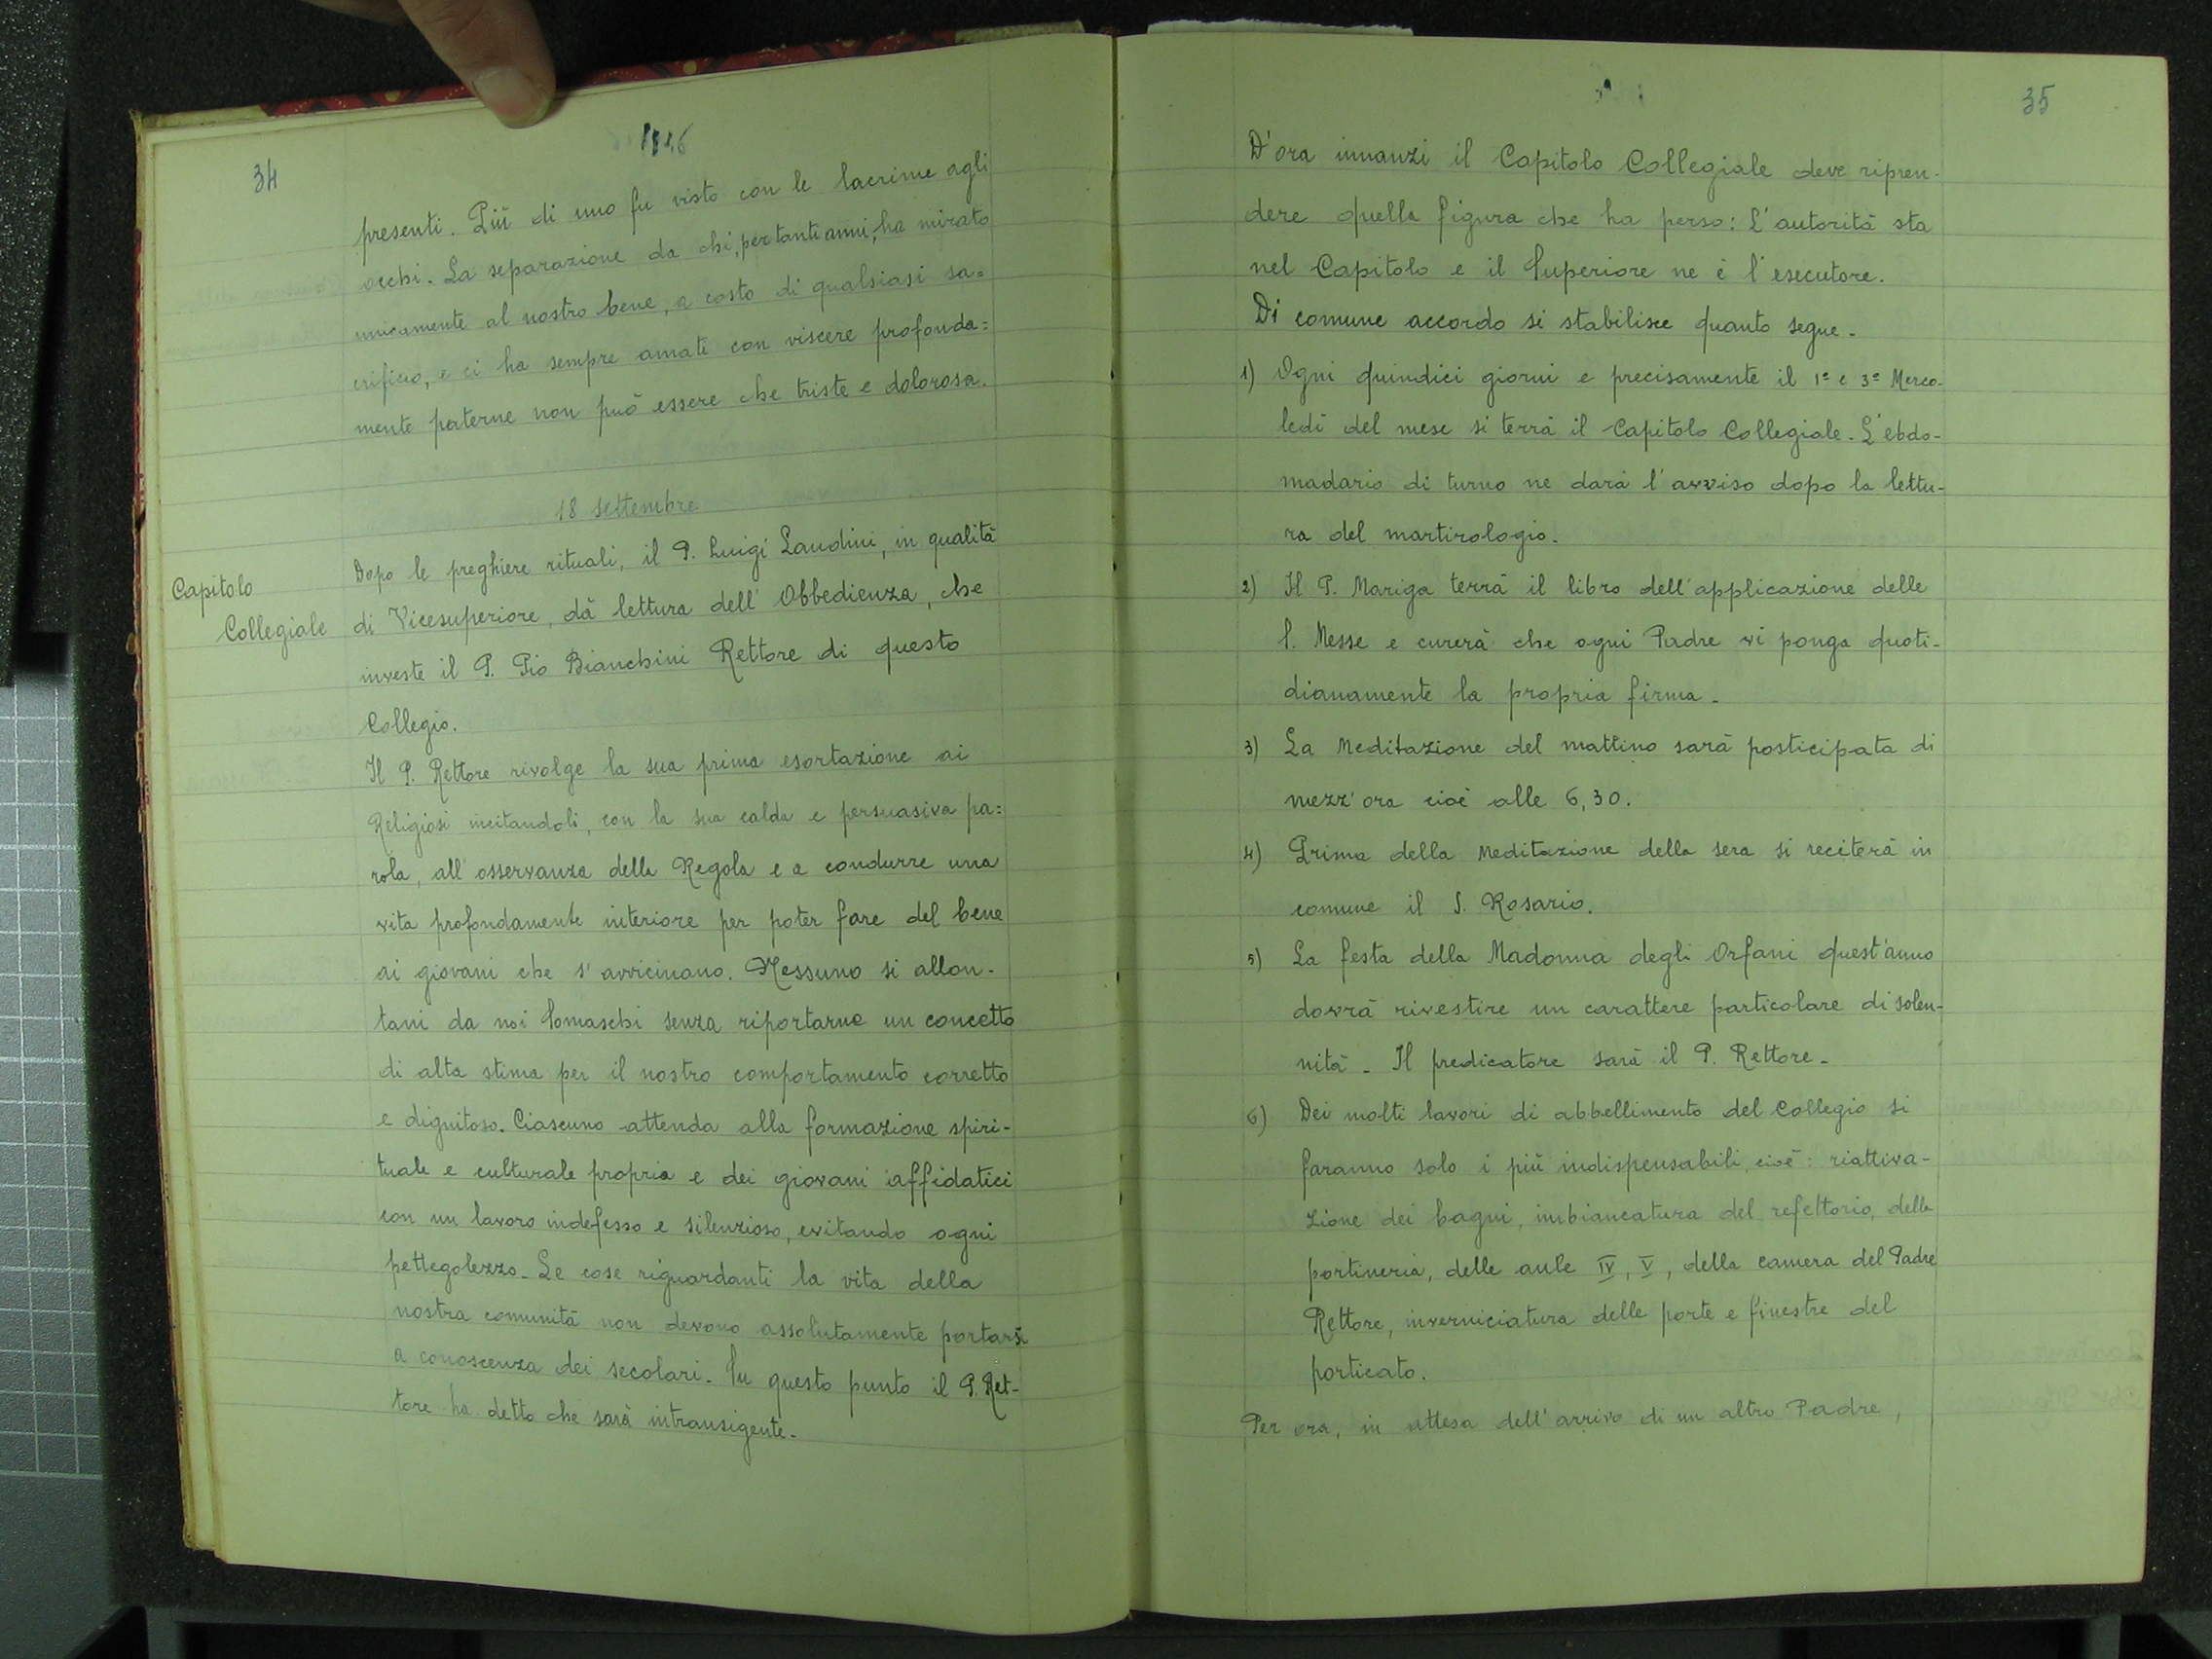 34
presenti. Più di uno fu visto con le lacrime agli
occhi. La separazione da chi, per tanti anni, ha mirato
unicamente al nostro bene, a costo di qualsiasi sa=
crificio, e ci ha sempre amati con viscere profonda=
mente paterne non può essere che triste e dolorosa.
18 settembre
Capitolo
Collegiale
Dopo le preghiere rituali, il P. Luigi Landini, in qualità
di Vicesuperiore, dà lettura dell'Obbedienza, che
investe il P. Pio Bianchini Rettore di questo
Collegio.
Il P. Rettore rivolge la sua prima esortazione ai
Religiosi incitandoli, con la sua calda e persuasiva pa=
rola, all'osservanza della Regola e a condurre una
vita profondamente interiore per poter fare del bene
ai giovani che s'avvicinano. Nessuno si allon-
tani da noi Somaschi senza riportarne un concetto
di alta stima per il nostro comportamento corretto
e dignitoso. Ciascuno attenda alla formazione spiri-
tuale e culturale propria e dei giovani affidatici
con un lavoro indefesso e silenzioso, evitando ogni
pettegolezzo. Le cose riguardanti la vita della
nostra comunità non devono assolutamente portarsi
a conoscenza dei secolari. Su questo punto il P. Ret-
tore ha detto che sarà intransigente.
35
D'ora innanzi il Capitolo Collegiale deve ripren-
dere quella figura che ha perso: L'autorità sta
nel Capitolo e il Superiore ne è l'esecutore.
Di comune accordo si stabilisce quanto segue.
1) Ogni quindici giorni e precisamente il 1º e 3º Merco-
ledì del mese si terrà il Capitolo Collegiale. L'ebdo-
madario di turno ne darà l'avviso dopo la lettu-
ra del martirologio.
2) Il P. Mariga terrà il libro dell'applicazione delle
S. Messe e curerà che ogni Padre vi ponga quoti-
dianamente la propria firma.
3) La Meditazione del mattino sarà posticipata di
mezz'ora cioè alle 6,30.
4) Prima della Meditazione della sera si reciterà in
comune il S. Rosario.
5) La festa della Madonna degli Orfani quest'anno
dovrà rivestire un carattere particolare di solen-
nità. Il predicatore sarà il P. Rettore.
6) Dei molti lavori di abbellimento del Collegio si
faranno solo i più indispensabili, cioè: riattiva-
zione dei bagni, imbiancatura del refettorio, della
portineria, delle aule IV, V, della camera del Padre
Rettore, inverniciatura delle porte e finestre del
porticato.
Per ora, in attesa dell'arrivo di un altro Padre,